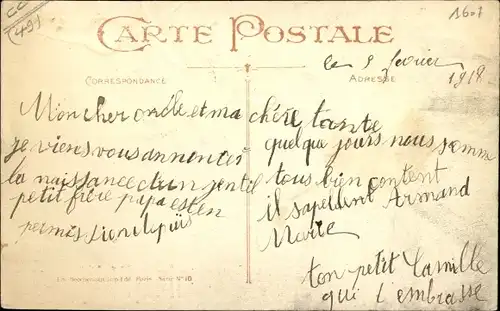 CC
(49)
1607
CARTE POSTALE
CORRESPONDANCE
ADRESSE
le 9 fevrier
1918
Mon cher oncle et ma chère tante
je viens vous annoncer
la naissance d'un gentil
petit frère papa est en
permission depuis
quelque jours nous somme
tous bien content
il sapellent Armand
Marie
ton petit Camille
qui t'embrasse